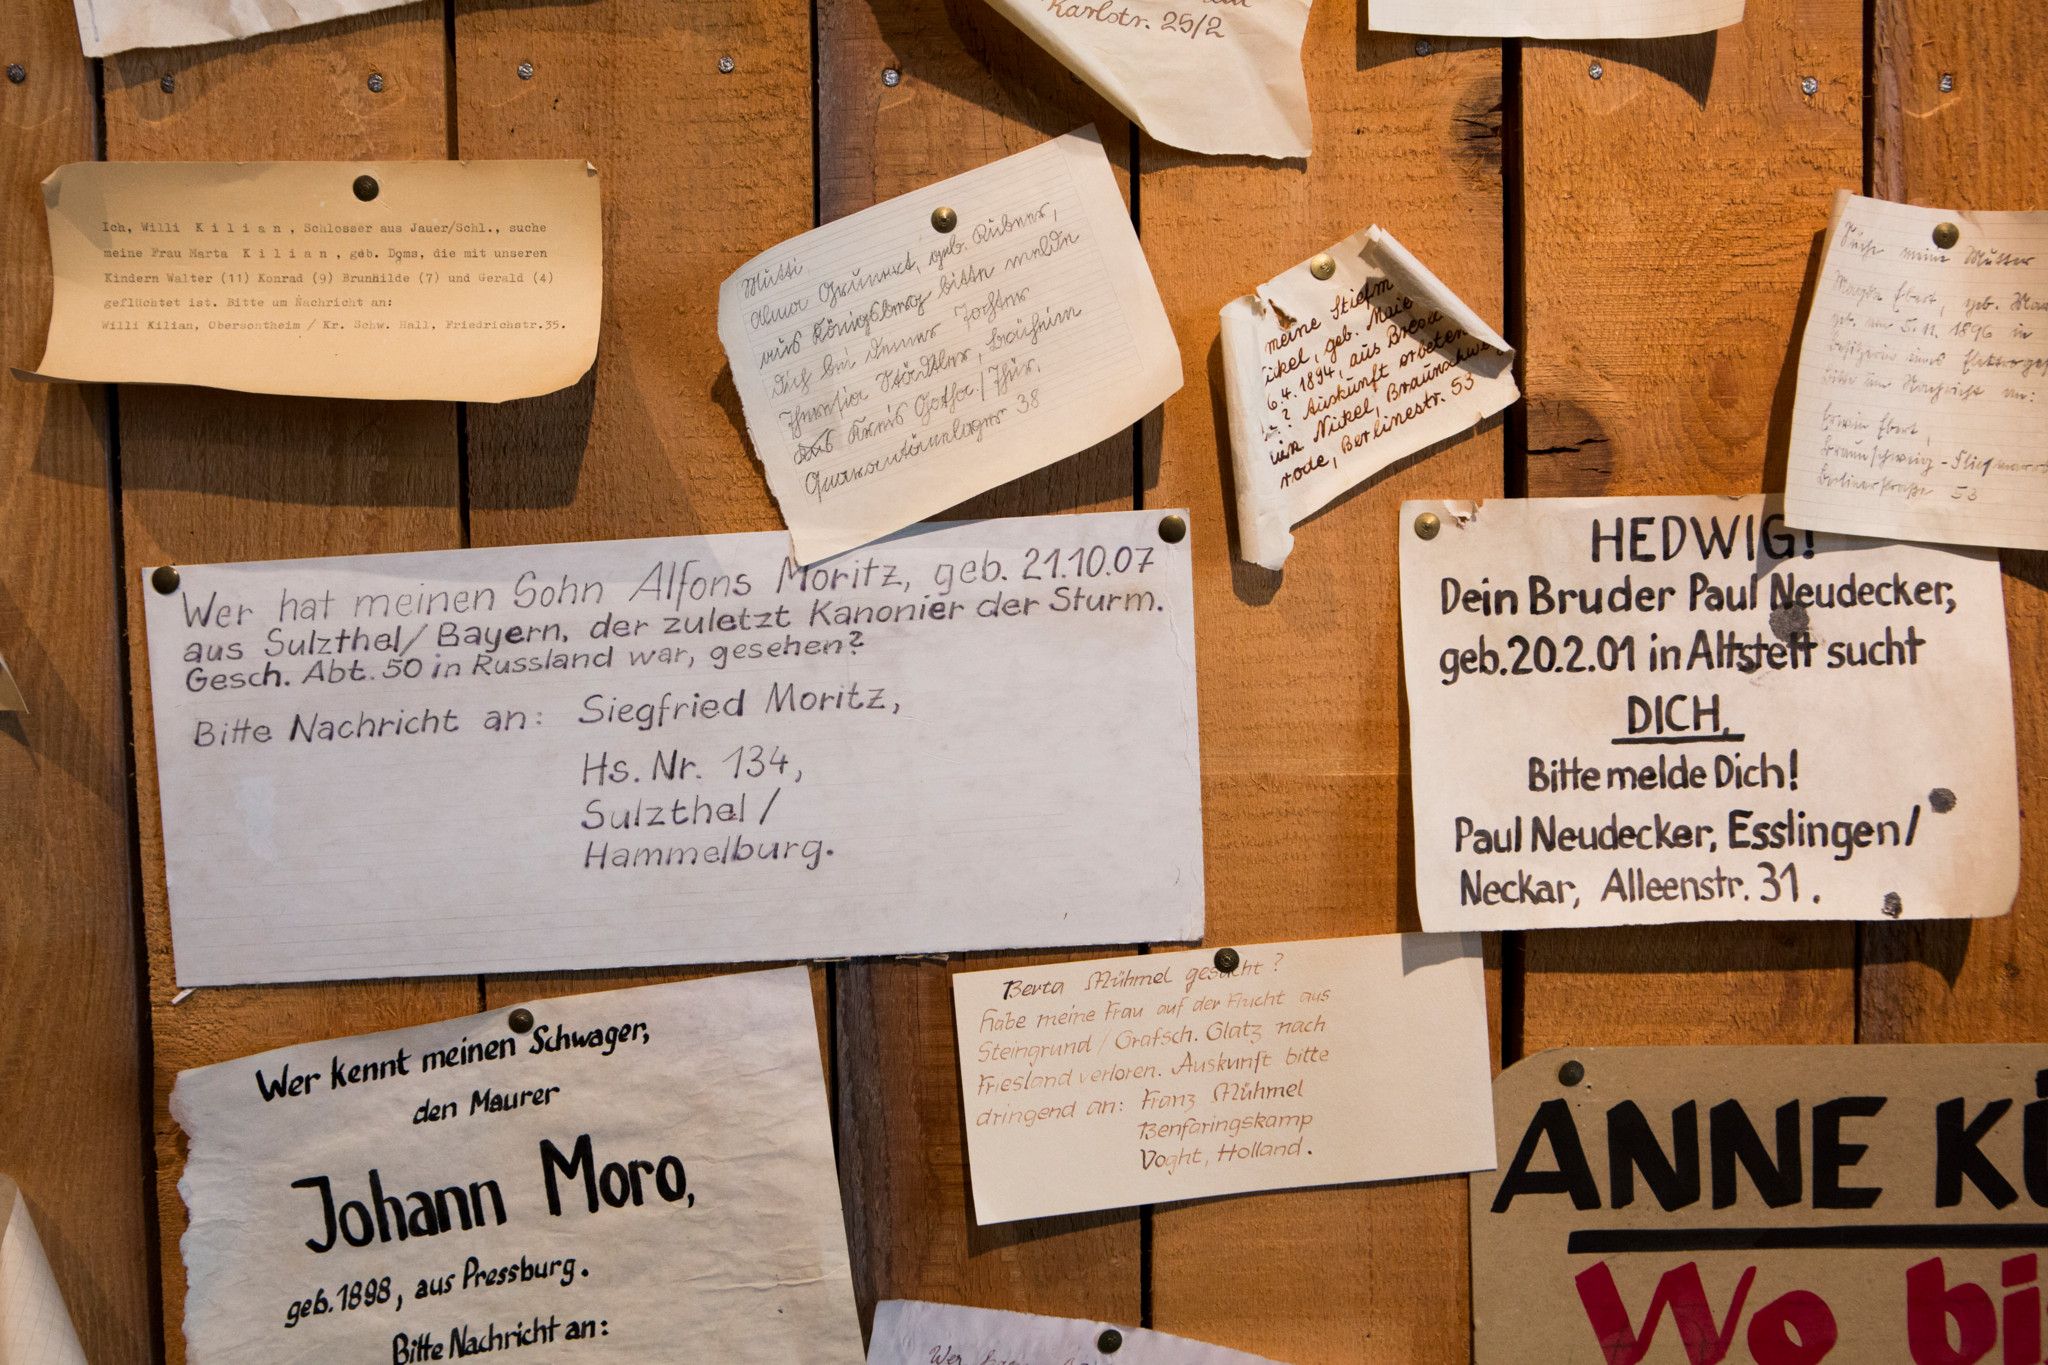 Karlstr. 25/2
Ich, Willi Kilian, Schlosser aus Jauer/Schl., suche
meine Frau Marta Kilian, geb. Doms, die mit unseren
Kindern Walter (11) Konrad (9) Brunhilde (7) und Gerald (4)
geflüchtet ist. Bitte um Nachricht an:
Willi Kilian, Obersontheim / Kr. Schw. Hall, Friedrichstr.35.
Mutti
Alma Grunert, geb. Rübner,
aus Königsberg bitte melde
Dich bei Deiner Tochter
Theresia Städtler,
Kreis Gotha / Thür.
Quarantänelager 38
meine Stiefm
ickel, geb. Maie
6.4.1894, aus Bresl
? Auskunft erbeten
Nickel, Braunschwe
rode, Berlinestr. 53
Suche meine Mutter
Ebert, geb.
geb. am 5.11.1896 in
Besitzerin eines Elektroge
Bitte um Nachricht an:
Erwin Ebert,
Braunschweig -
Berlinerstraße 53
Wer hat meinen Sohn Alfons Moritz, geb. 21.10.07
aus Sulzthel/Bayern, der zuletzt Kanonier der Sturm.
Gesch. Abt. 50 in Russland war, gesehen?
Bitte Nachricht an: Siegfried Moritz,
Hs. Nr. 134,
Sulzthel /
Hammelburg.
HEDWIG!
Dein Bruder Paul Neudecker,
geb. 20.2.01 in Altstett sucht
DICH,
Bitte melde Dich!
Paul Neudecker, Esslingen/
Neckar, Alleenstr. 31.
Berta Mühmel gesucht?
Habe meine Frau auf der Flucht aus
Steingrund / Grafsch. Glatz nach
Friesland verloren. Auskunft bitte
dringend an: Franz Mühmel
Benfaringskamp
Voght, Holland.
Wer kennt meinen Schwager,
den Maurer
Johann Moro,
geb. 1898, aus Pressburg.
Bitte Nachricht an:
ANNE KÜ
Wo bi
Wer